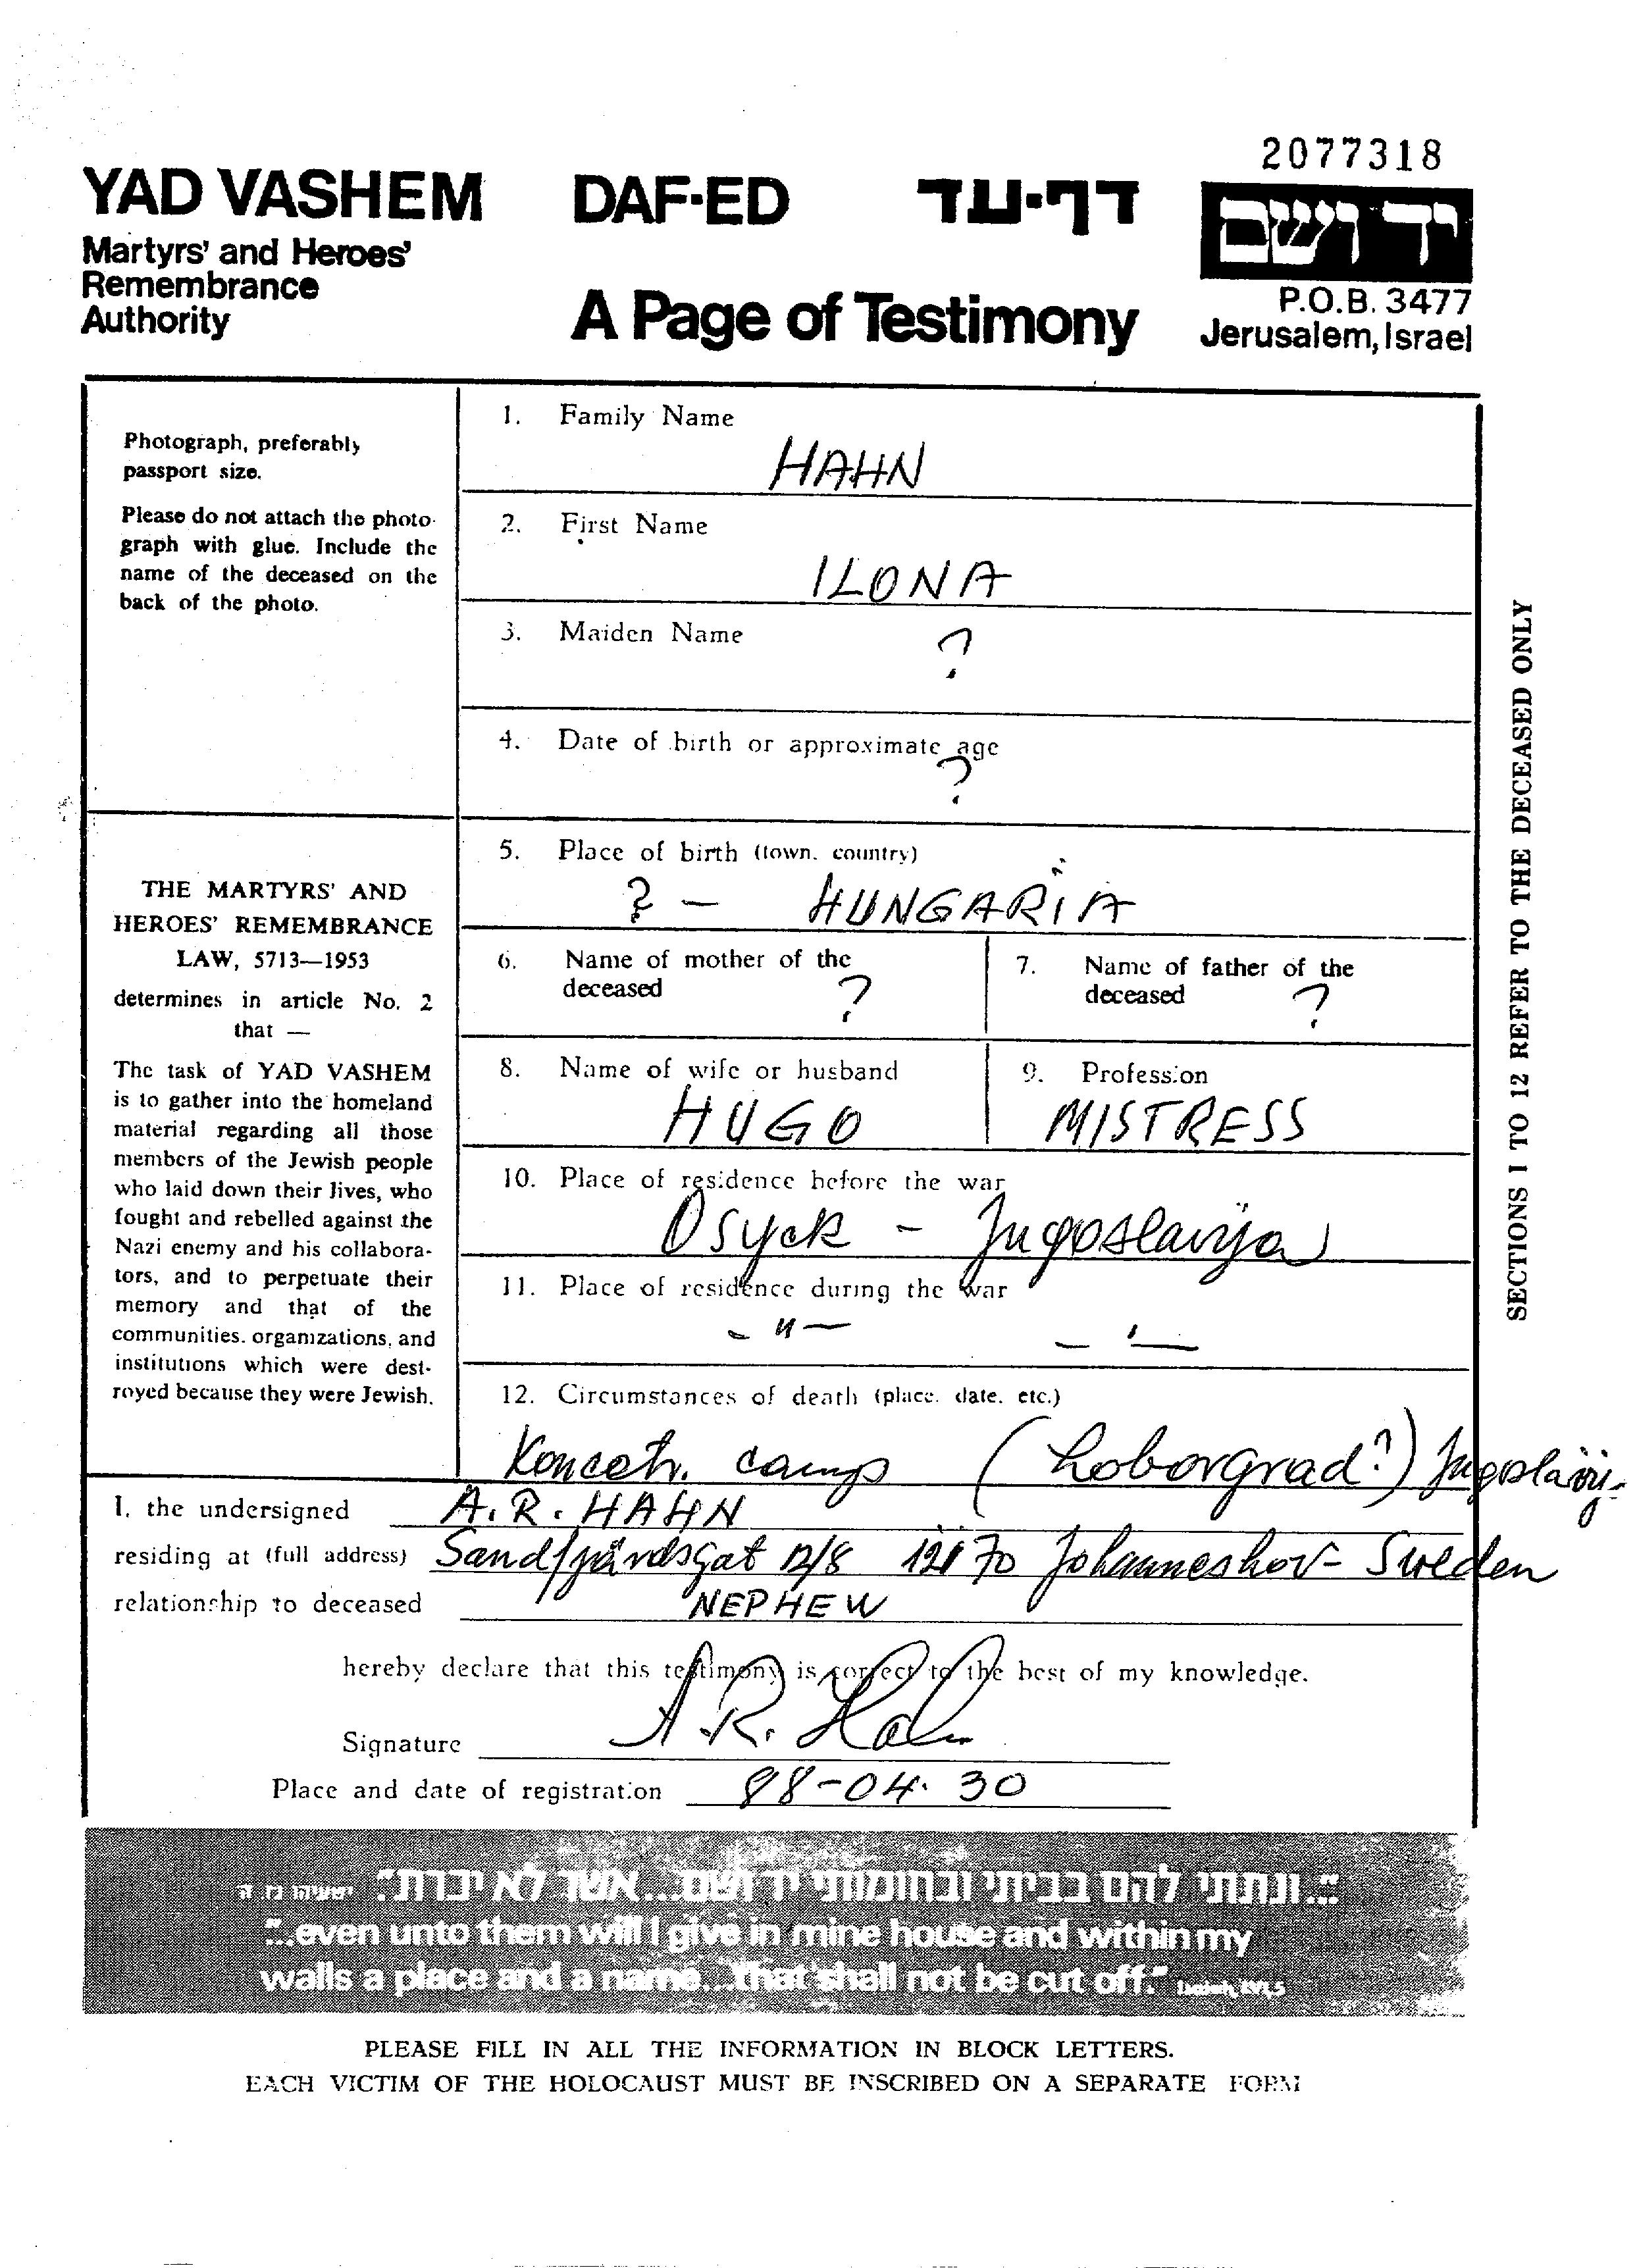 2077318
YAD VASHEM
Martyrs' and Heroes'
Remembrance
Authority
DAF-ED
דף-עד
A Page of Testimony
יד ושם
P.O.B. 3477
Jerusalem, Israel
Photograph, preferably
passport size.
Please do not attach the photo-
graph with glue. Include the
name of the deceased on the
back of the photo.
THE MARTYRS' AND
HEROES' REMEMBRANCE
LAW, 5713—1953
determines in article No. 2
that —
The task of YAD VASHEM
is to gather into the homeland
material regarding all those
members of the Jewish people
who laid down their lives, who
fought and rebelled against the
Nazi enemy and his collabora-
tors, and to perpetuate their
memory and that of the
communities, organizations, and
institutions which were dest-
royed because they were Jewish.
1. Family Name
HAHN
2. First Name
ILONA
3. Maiden Name
?
4. Date of birth or approximate age
?
5. Place of birth (town, country)
? - HUNGARIA
6. Name of mother of the
deceased
?
7. Name of father of the
deceased
?
8. Name of wife or husband
HUGO
9. Profession
MISTRESS
10. Place of residence before the war
Osyek - Jugoslavija
11. Place of residence during the war
- " - - ' -
12. Circumstances of death (place, date, etc.)
Koncetr. camp (Loborgrad?)
SECTIONS 1 TO 12 REFER TO THE DECEASED ONLY
I, the undersigned A.R. HAHN
residing at (full address) 12/8 Johanneshov - Sweden
relationship to deceased NEPHEW
hereby declare that this testimony is correct to the best of my knowledge.
Signature A.R. Hahn
Place and date of registration 98-04.30
"...ונתתי להם בביתי ובחומותי יד ושם...אשר לא יכרת". ישעיהו נו, ה
"...even unto them will I give in mine house and within my
walls a place and a name...that shall not be cut off." Isaiah, LVI, 5
PLEASE FILL IN ALL THE INFORMATION IN BLOCK LETTERS.
EACH VICTIM OF THE HOLOCAUST MUST BE INSCRIBED ON A SEPARATE FORM